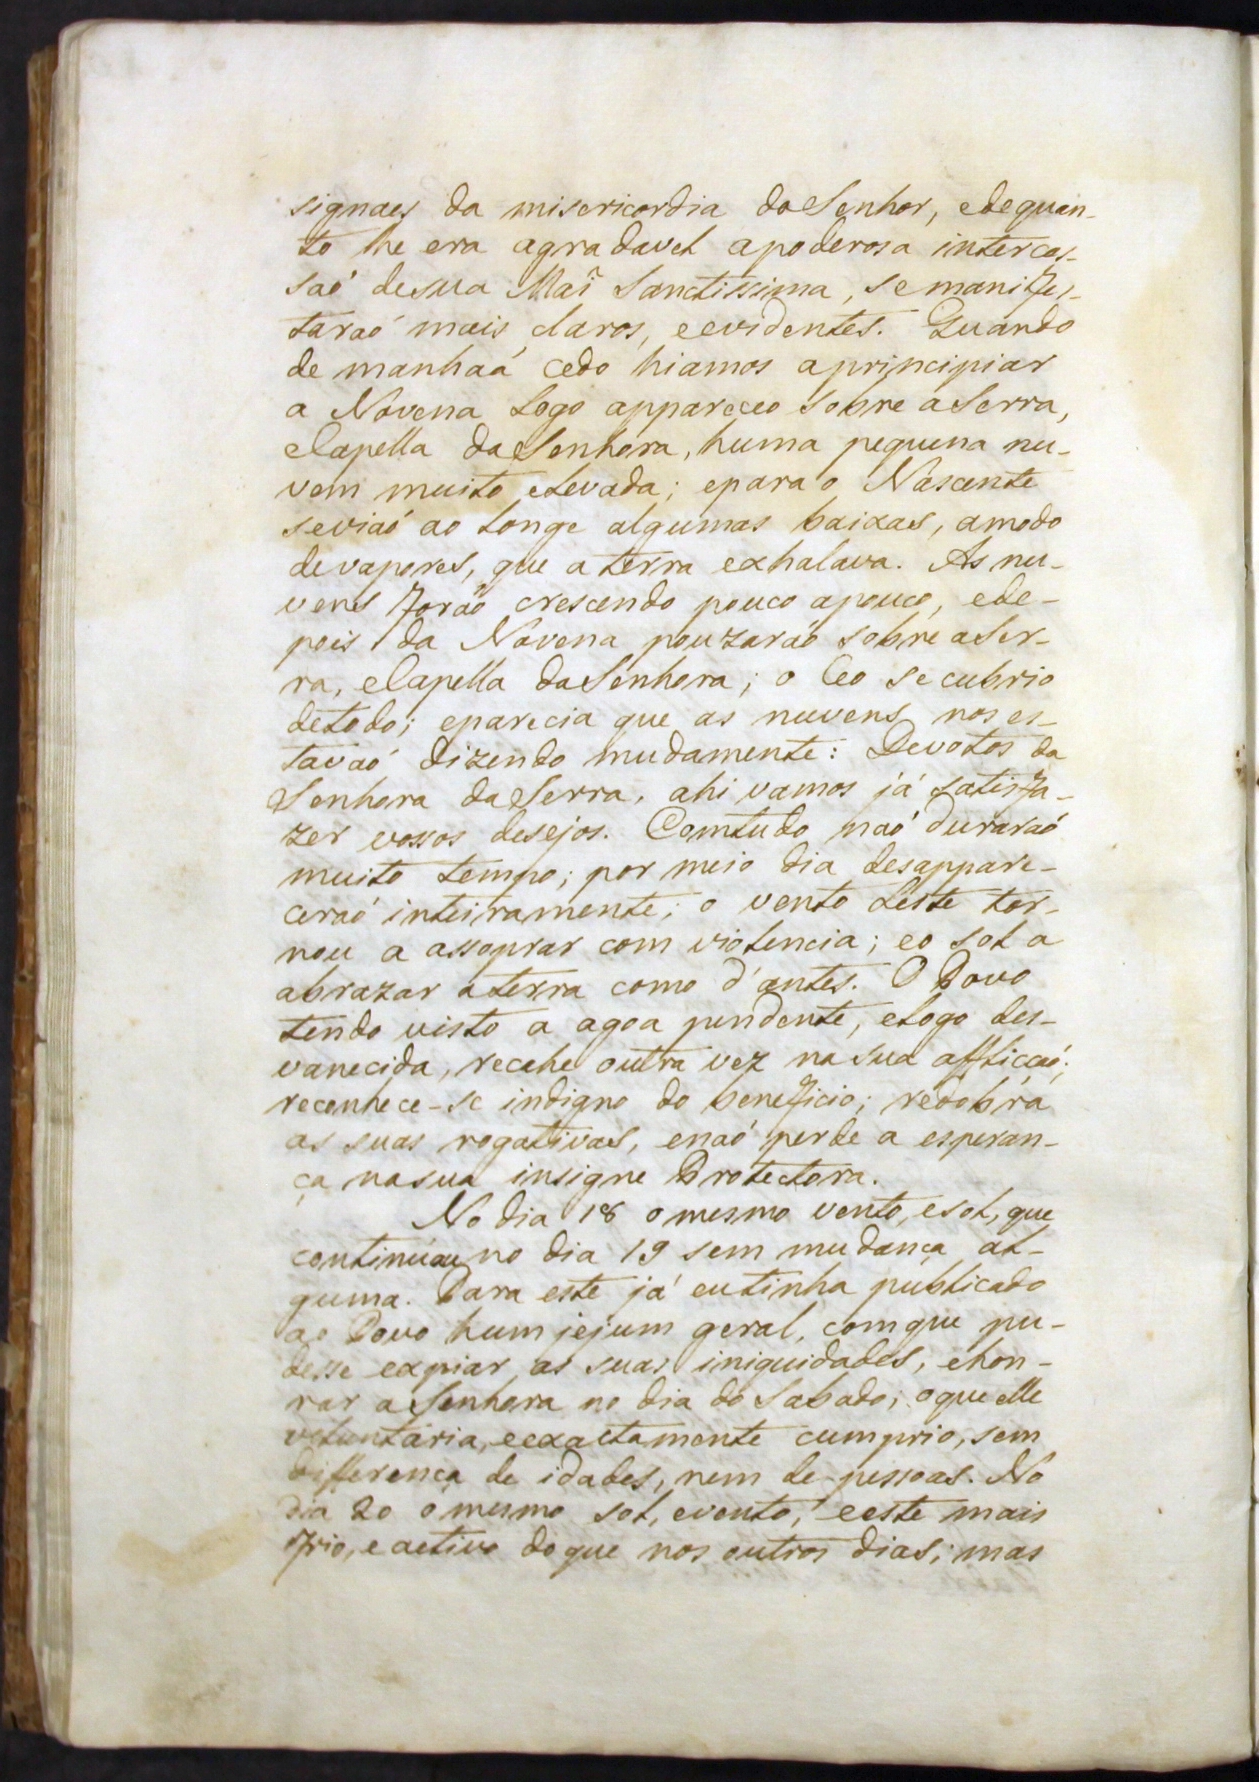 signaes da misericordia do Senhor, e de quan-
to lhe era agradavel a poderosa interces-
saõ de sua Maĩ Sanctissima, se manifes-
taraõ mais claros, e evidentes. Quando
de manhaã cedo hiamos a principiar
a Novena logo appareceo sobre a Serra,
e Capella da Senhora, huma pequena nu-
vem muito elevada; e para o Nascente
se viaõ ao longe algumas baixas, a modo
de vapores, que a terra exhalava. As nu-
vens foraõ crescendo pouco a pouco, e de-
pois da Novena pouzaraõ sobre a Ser-
ra, e Capella da Senhora; o Ceo se cubrio
de todo; e parecia que as nuvens nos es-
tavaõ dizendo mudamente: Devotos da
Senhora da Serra, ahi vamos já satisfa-
zer vossos desejos. Comtudo naõ duraraõ
muito tempo; por meio dia desappare-
ceraõ inteiramente; o vento Léste tor-
nou a assoprar com violencia; e o sol a
abrazar a terra como d'antes. O Povo
tendo visto a agoa pendente, e logo des-
vanecida, recahe outra vez na sua afflicçaõ;
reconhece-se indigno do beneficio; redobra
as suas rogativas, e naõ perde a esperan-
ça na sua insigne Protectora.
No dia 18 o mesmo vento, e sol, que
continúou no dia 19 sem mudança al-
guma. Para este já eu tinha publicado
ao Povo hum jejum geral, com que pu-
desse expiar as suas iniquidades, e hon-
rar a Senhora no dia do Sabado; o que elle
voluntaria, e exactamente cumprio, sem
differença de idades, nem de pessoas. No
dia 20 o mesmo sol, e vento, e este mais
frio, e activo do que nos outros dias; mas